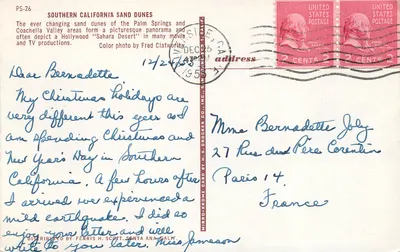 PS-26
SOUTHERN CALIFORNIA SAND DUNES
The ever changing sand dunes of the Palm Springs and
Coachella Valley areas form a picturesque panorama and
often depict a Hollywood "Sahara Desert" in many movie
and TV productions.
Color photo by Fred Clatworthy
12/24/55
Dear Bernadette,
My Christmas holidays are
very different this year as I
am spending Christmas and
New Year's Day in Southern
California. A few hours after
I arrived we experienced a
mild earthquake. I did so
enjoy your letter and will
write to you later. Miss Jameson
DISTRIBUTED BY FERRIS H. SCOTT, SANTA ANA, CALIF.
RIVERSIDE, CALIF.
DEC 26
1955
UNITED STATES
POSTAGE
2 CENTS 2
UNITED STATES
POSTAGE
2 CENTS 2
address
Mme Bernadette Joly
27 Rue du Père Corentin
Paris 14
France